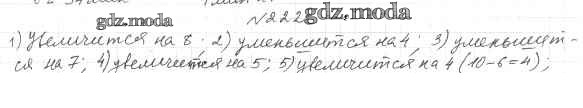 №222 gdz.moda
gdz.moda
1) увеличится на 8; 2) уменьшится на 4; 3) уменьшит-
ся на 7; 4) увеличится на 5; 5) увеличится на 4 (10-6=4);